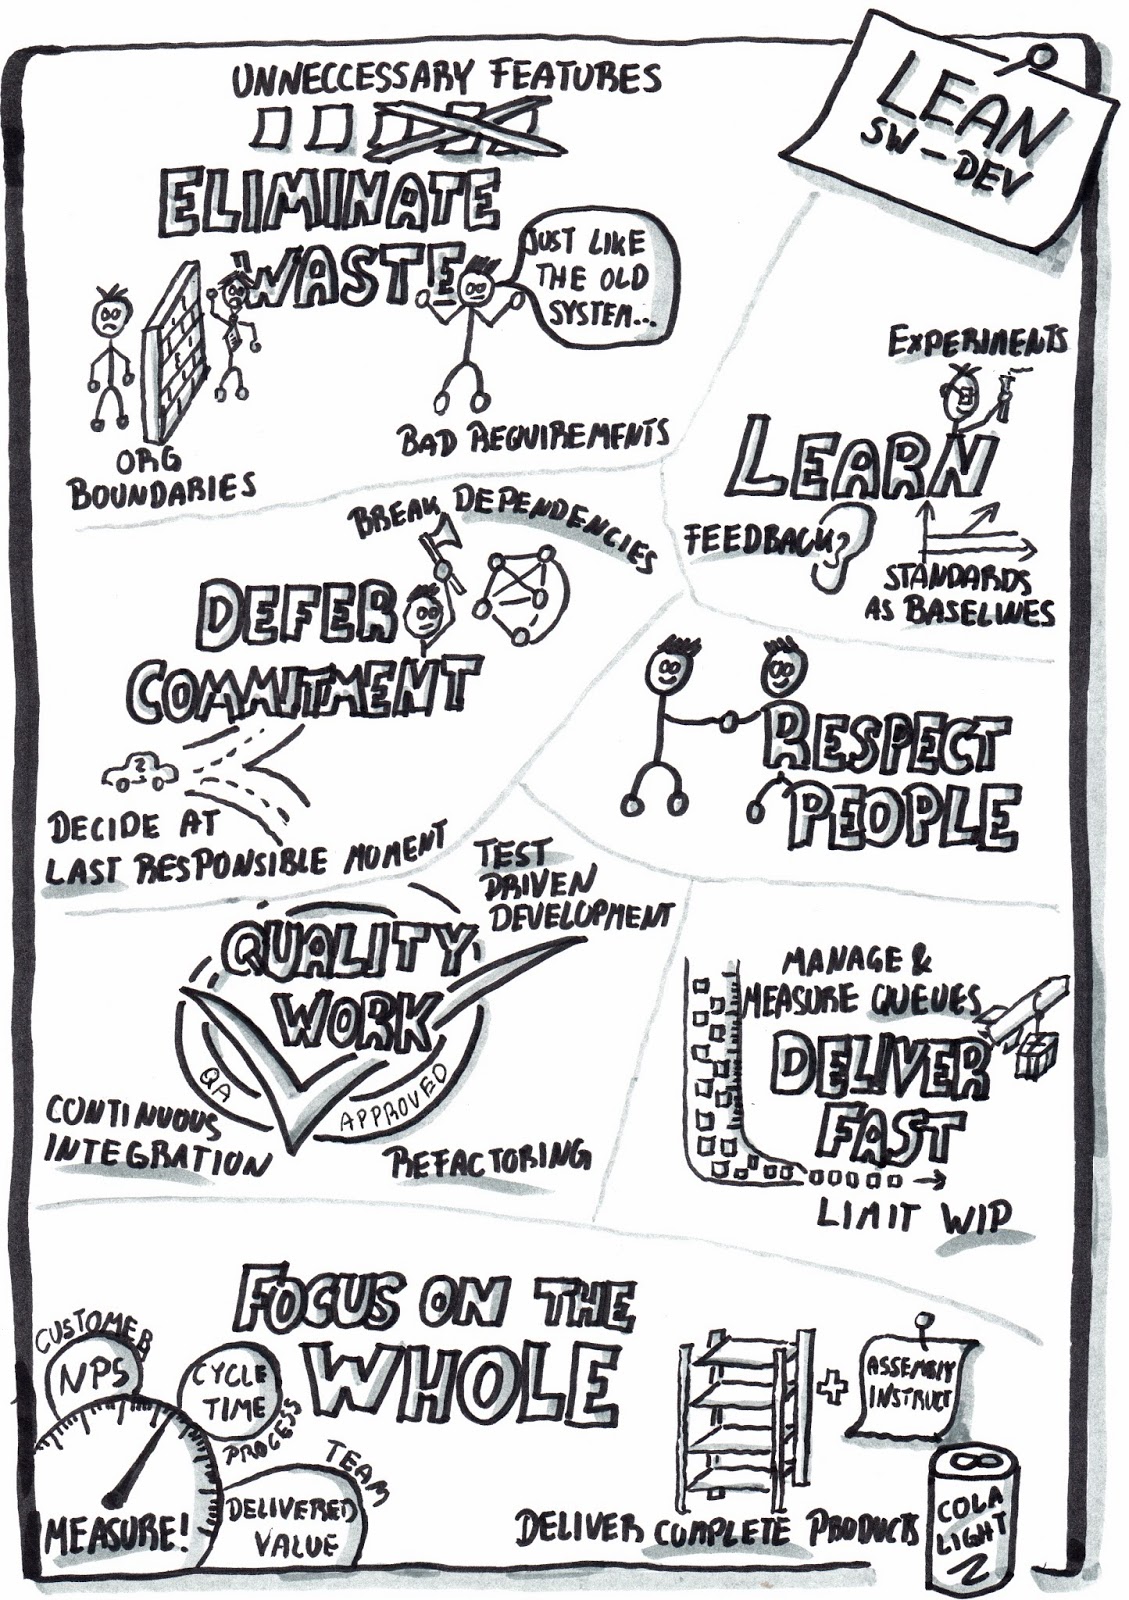 LEAN
SW-DEV
UNNECCESSARY FEATURES
ELIMINATE
WASTE
JUST LIKE
THE OLD
SYSTEM...
ORG
BOUNDARIES
BAD REQUIREMENTS
EXPERIMENTS
LEARN
FEEDBACK
STANDARDS
AS BASELINES
BREAK DEPENDENCIES
DEFER
COMMITMENT
?
DECIDE AT
LAST RESPONSIBLE MOMENT
RESPECT
PEOPLE
TEST
DRIVEN
DEVELOPMENT
QUALITY
WORK
QA
APPROVED
CONTINUOUS
INTEGRATION
REFACTORING
MANAGE &
MEASURE QUEUES
DELIVER
FAST
LIMIT WIP
FOCUS ON THE
WHOLE
CUSTOMER
NPS
CYCLE
TIME
PROCESS
TEAM
DELIVERED
VALUE
MEASURE!
+
ASSEMBLY
INSTRUCT
DELIVER COMPLETE PRODUCTS
COLA
LIGHT